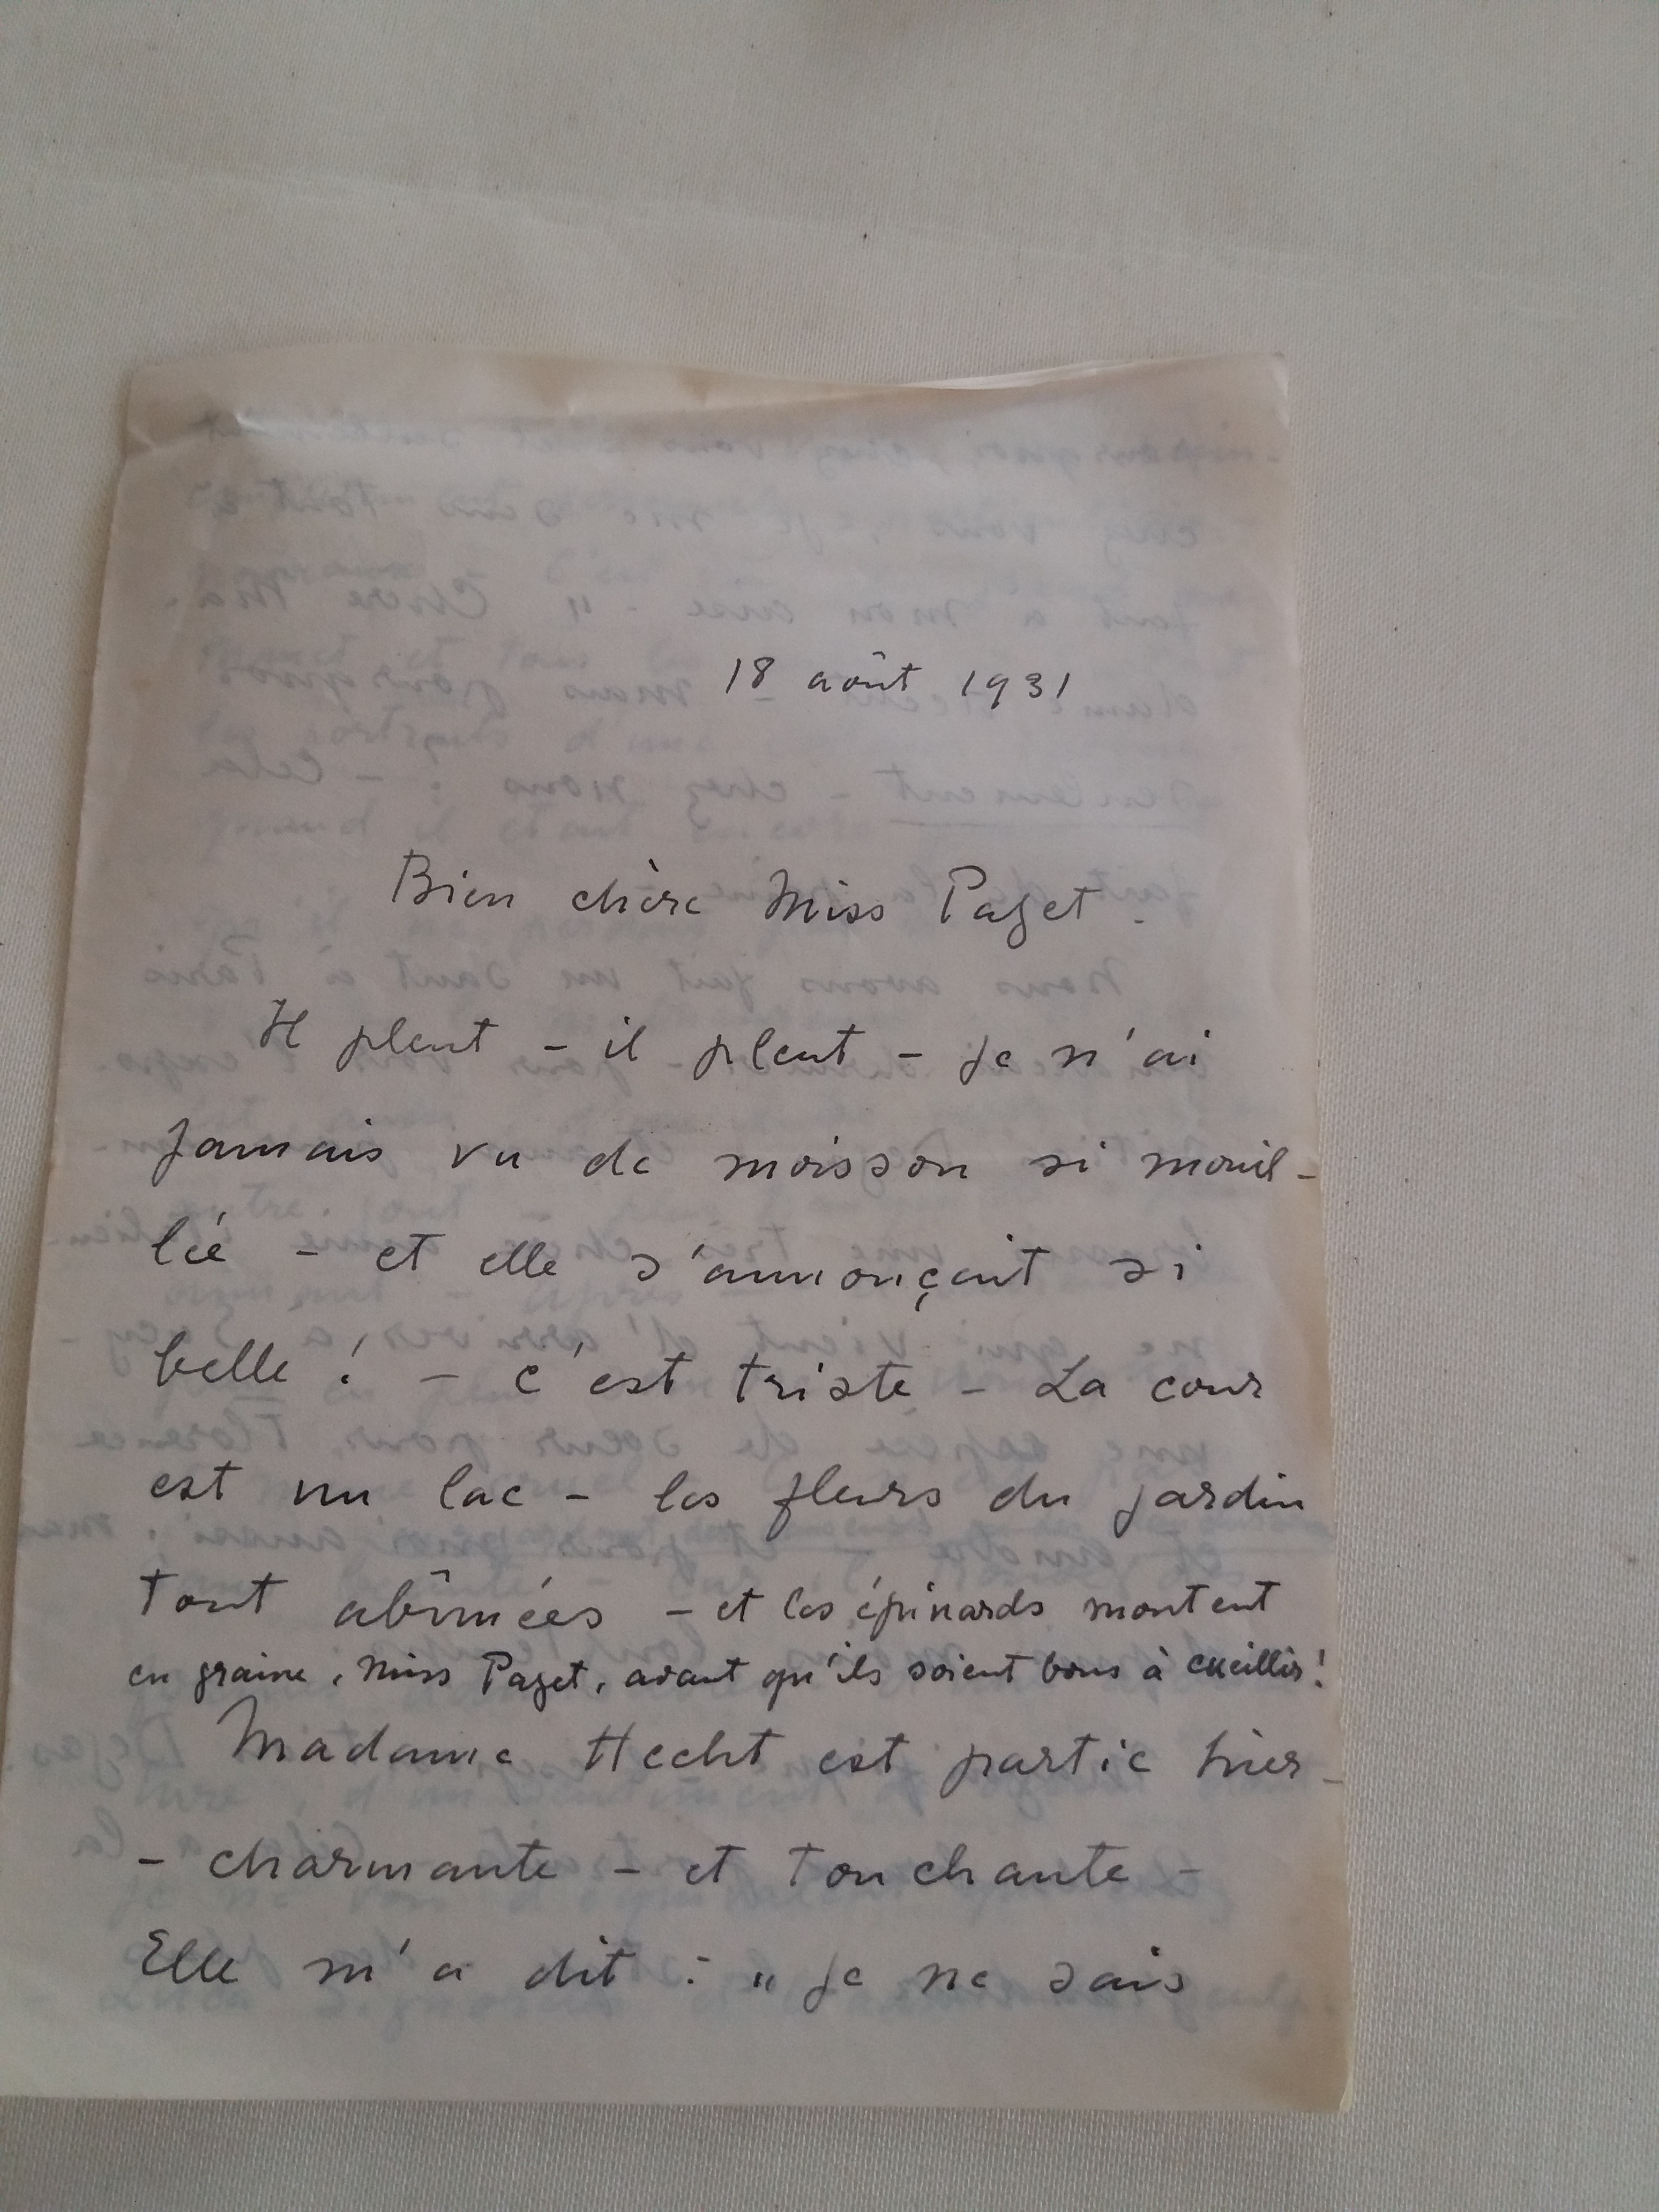 18 août 1931
Bien chère Miss Paget.
Il pleut – il pleut – je n'ai
jamais vu de moisson si mouil-
lée – et elle s'annonçait si
belle ! – c'est triste – La cour
est un lac – les fleurs du jardin
tout abîmées – et les épinards montent
en graine, Miss Paget, avant qu'ils soient bons à cueillir !
Madame Hecht est partie hier –
– charmante – et touchante –
Elle m'a dit : " je ne sais